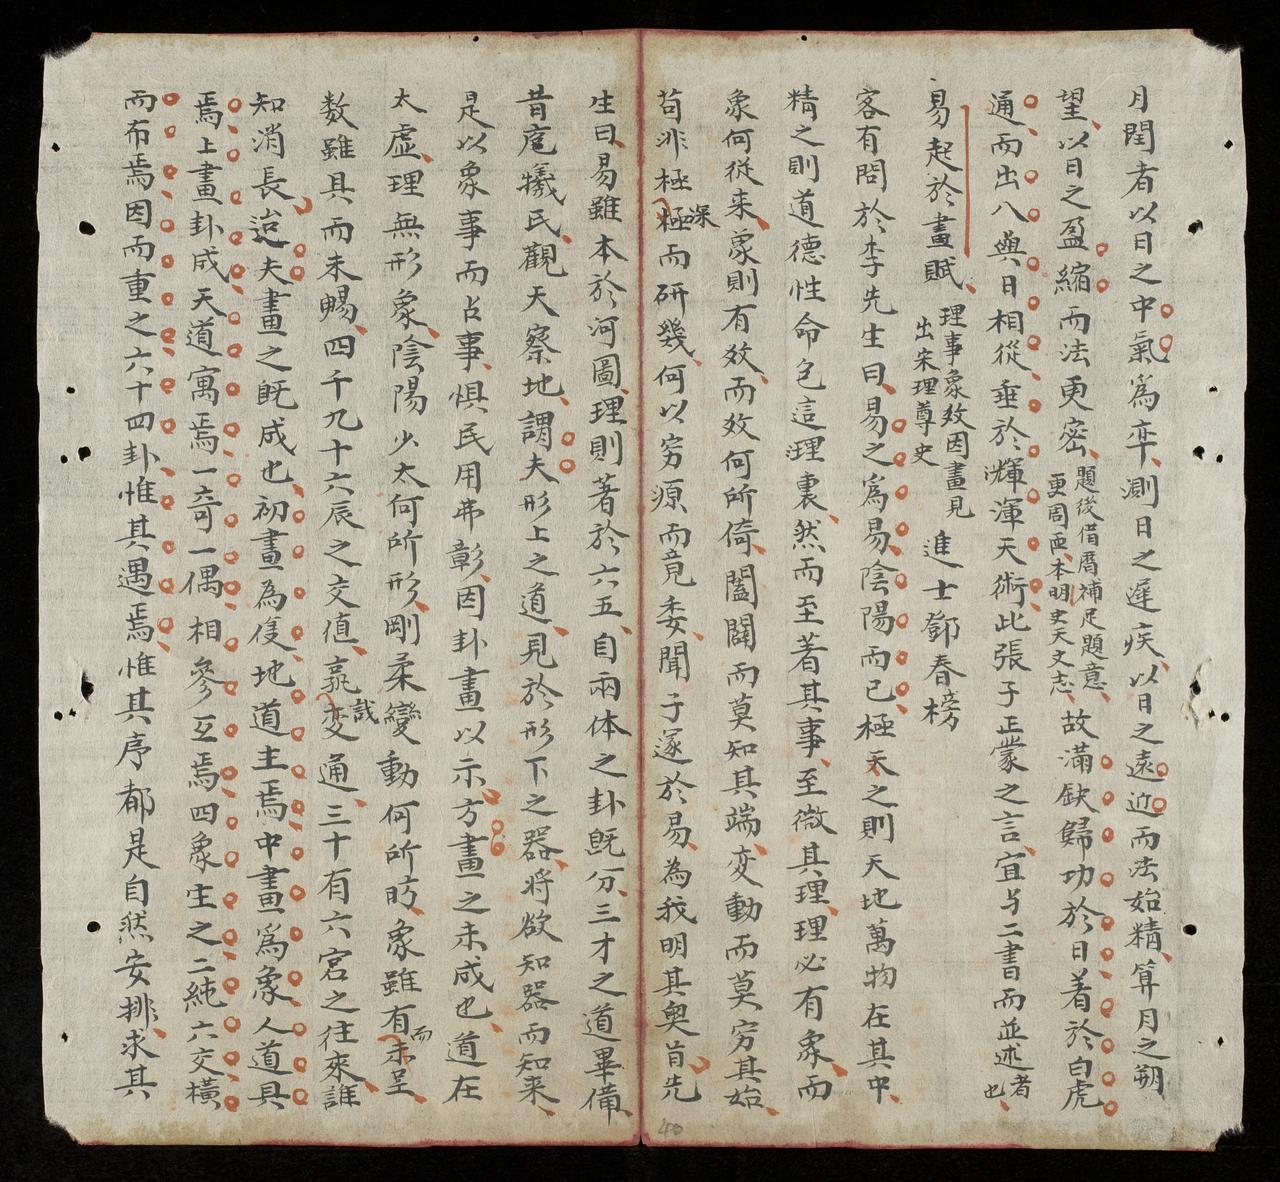 月閏者以日之中氣爲卒測日之遲疾以日之遠近而法始精算月之朔
望以日之盈縮而法更密題後借曆補足題意更周匝本明史天文志故滿缺歸功於日着於白虎
通而出入與日相從垂於輝渾天術此張子正蒙之言宜与二書而並述者也
易起於畫賦理事象效因畫見出宋理尊史進士鄧春榜
客有問於李先生曰易之爲易陰陽而已極天之則天地萬物在其中
精之則道德性命包這理裏然而至著其事至微其理理必有象而
象何從來象則有效而效何所倚闔闢而莫知其端变動而莫穷其始
苟非極極深而研幾何以穷源而竟委聞子邃於易為我明其奧旨先
生曰易雖本於河圖理則著於六五自兩体之卦既分三才之道畢備
昔庖犧民觀天察地謂夫形上之道見於形下之器將欲知器而知来
是以象事而占事惧民用弗彰因卦畫以示方畫之未成也道在
太虛理無形象陰陽少太何所形剛柔變動何所昉象雖有而未呈
数雖具而未暢四千九十六辰之交值孰变哉通三十有六宮之往來誰
知消長迨夫畫之既成也初畫為隻地道主焉中畫爲象人道具
焉上畫卦成天道寓焉一奇一偶相參互焉四象生之二純六交橫
而布焉因而重之六十四卦惟其遇焉惟其序都是自然安排求其